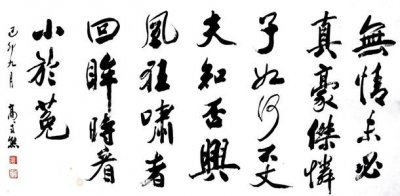 無情未必
真豪傑憐
子如何不丈
夫知否興
風狂嘯者
回眸時看
小於菟
己卯九月